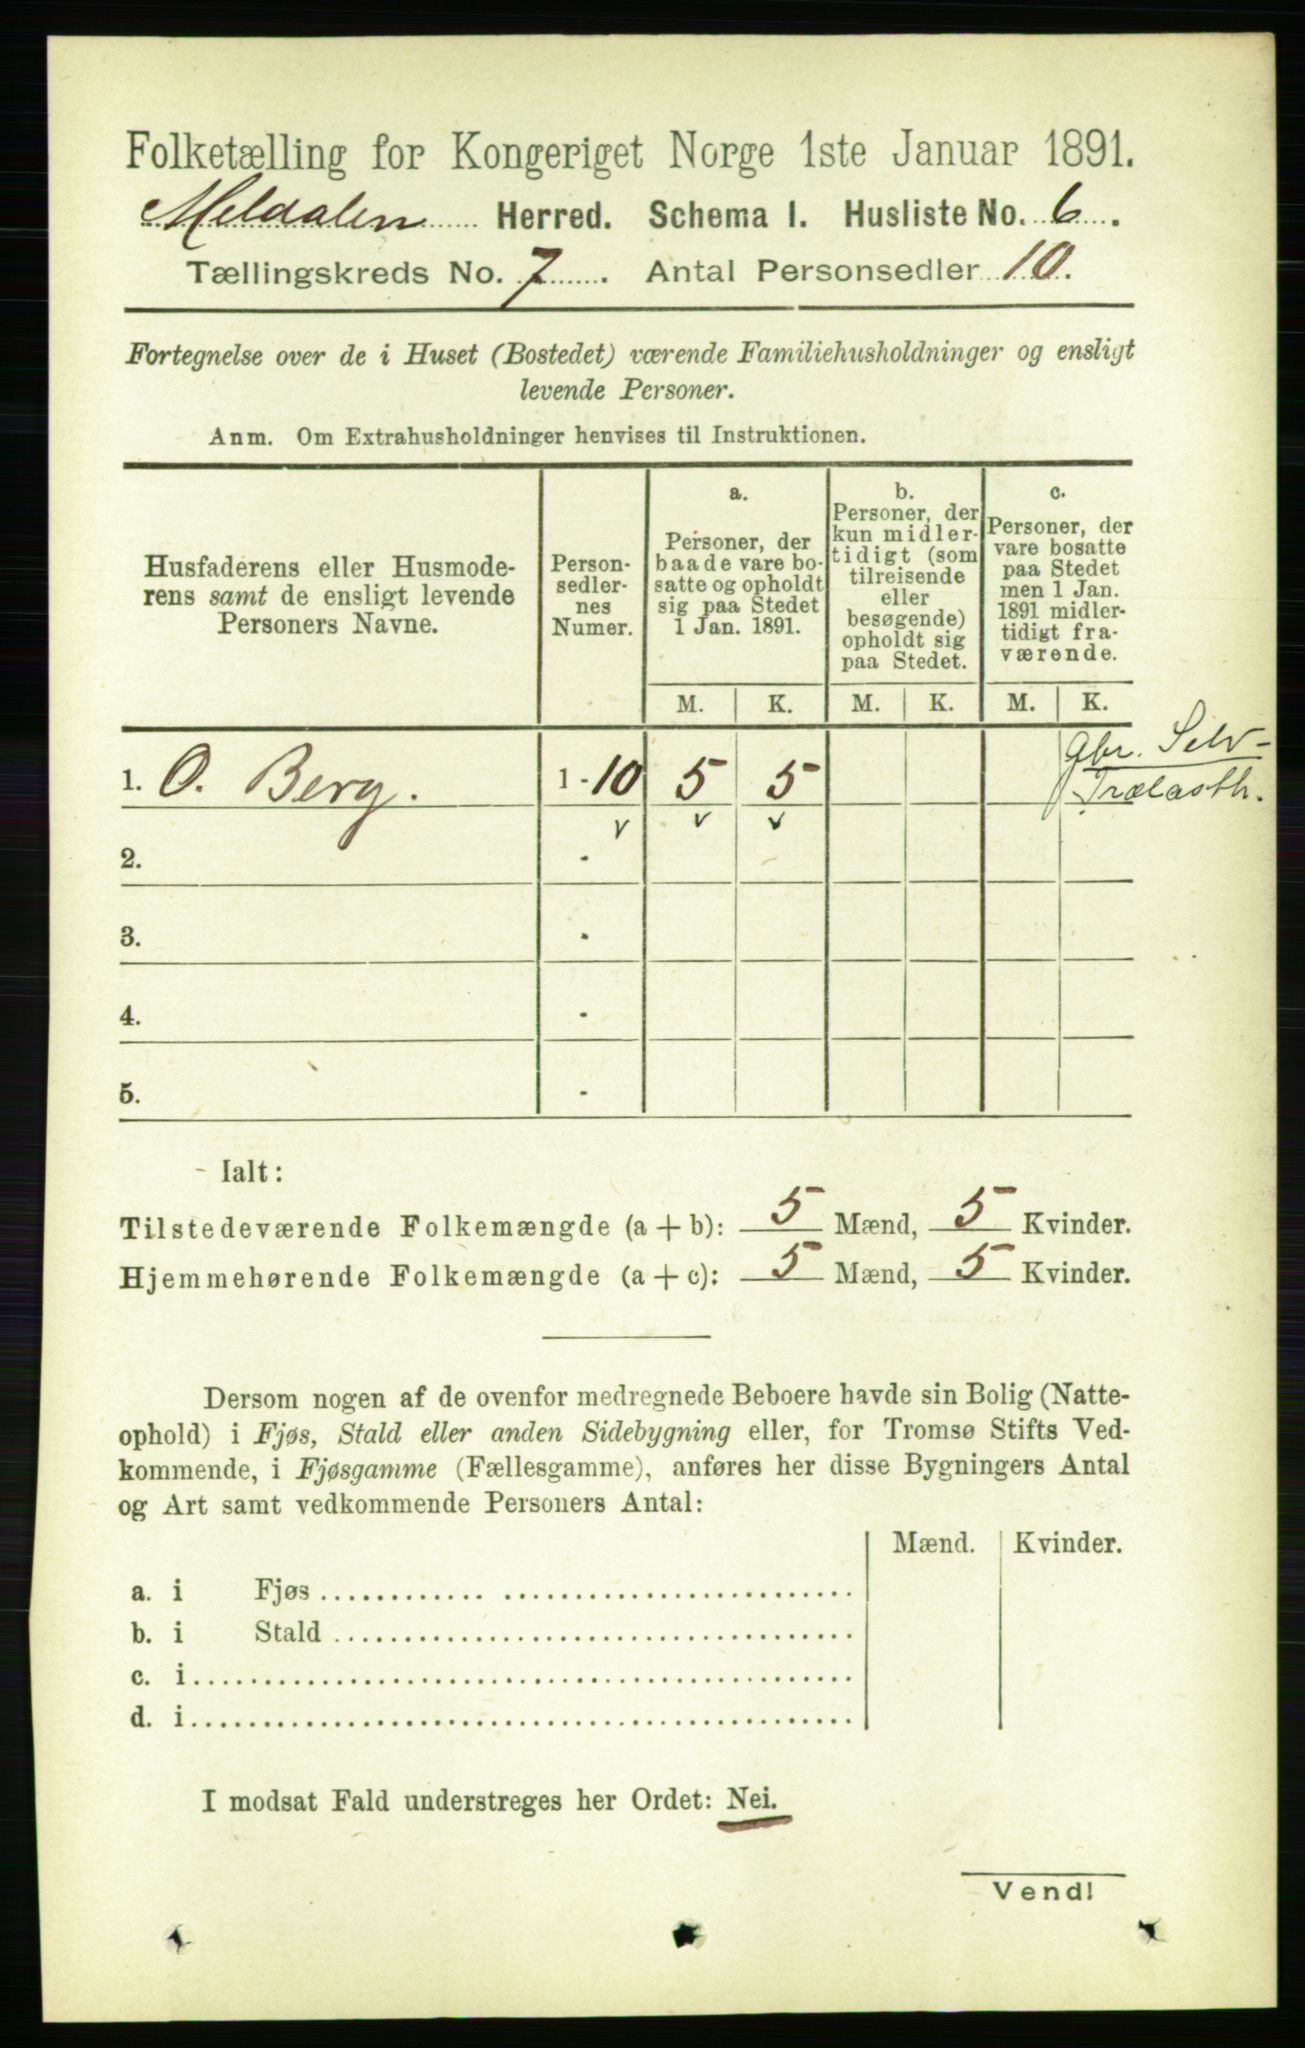 Folketælling for Kongeriget Norge 1ste Januar 1891.
Meldalen Herred. Schema I. Husliste No. 6.
Tællingskreds No. 7. Antal Personsedler 10.
Fortegnelse over de i Huset (Bostedet) værende Familiehusholdninger og ensligt
levende Personer.
Anm. Om Extrahusholdninger henvises til Instruktionen.
Husfaderens eller Husmode-
rens samt de ensligt levende
Personers Navne.
Person-
sedler-
nes
Numer.
a.
Personer, der
baade vare bo-
satte og opholdt
sig paa Stedet
1 Jan. 1891.
b.
Personer, der
kun midler-
tidigt (som
tilreisende
eller
besøgende)
opholdt sig
paa Stedet.
c.
Personer, der
vare bosatte
paa Stedet
men 1 Jan.
1891 midler-
tidigt fra-
værende.
M. K. M. K. M. K.
1. O. Berg. 1-10 5 5
Gbr. Selv-
Trælasth.
2.
3.
4.
5.
Ialt:
Tilstedeværende Folkemængde (a + b): 5 Mænd, 5 Kvinder.
Hjemmehørende Folkemængde (a + c): 5 Mænd, 5 Kvinder.
Dersom nogen af de ovenfor medregnede Beboere havde sin Bolig (Natte-
ophold) i Fjøs, Stald eller anden Sidebygning eller, for Tromsø Stifts Ved-
kommende, i Fjøsgamme (Fællesgamme), anføres her disse Bygningers Antal
og Art samt vedkommende Personers Antal:
Mænd. Kvinder.
a. i Fjøs
b. i Stald
c. i
d. i
I modsat Fald understreges her Ordet: Nei.
Vend!